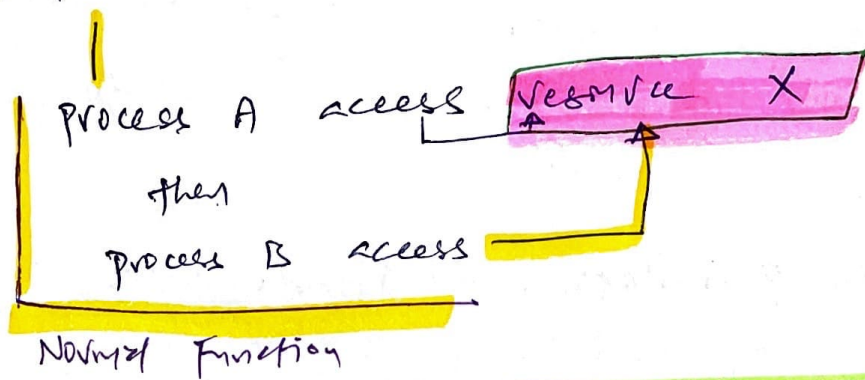 process A access resource X
then
process B access
Normal Function